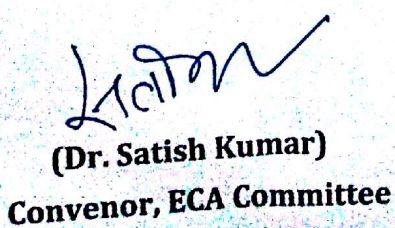 सतीश
(Dr. Satish Kumar)
Convenor, ECA Committee